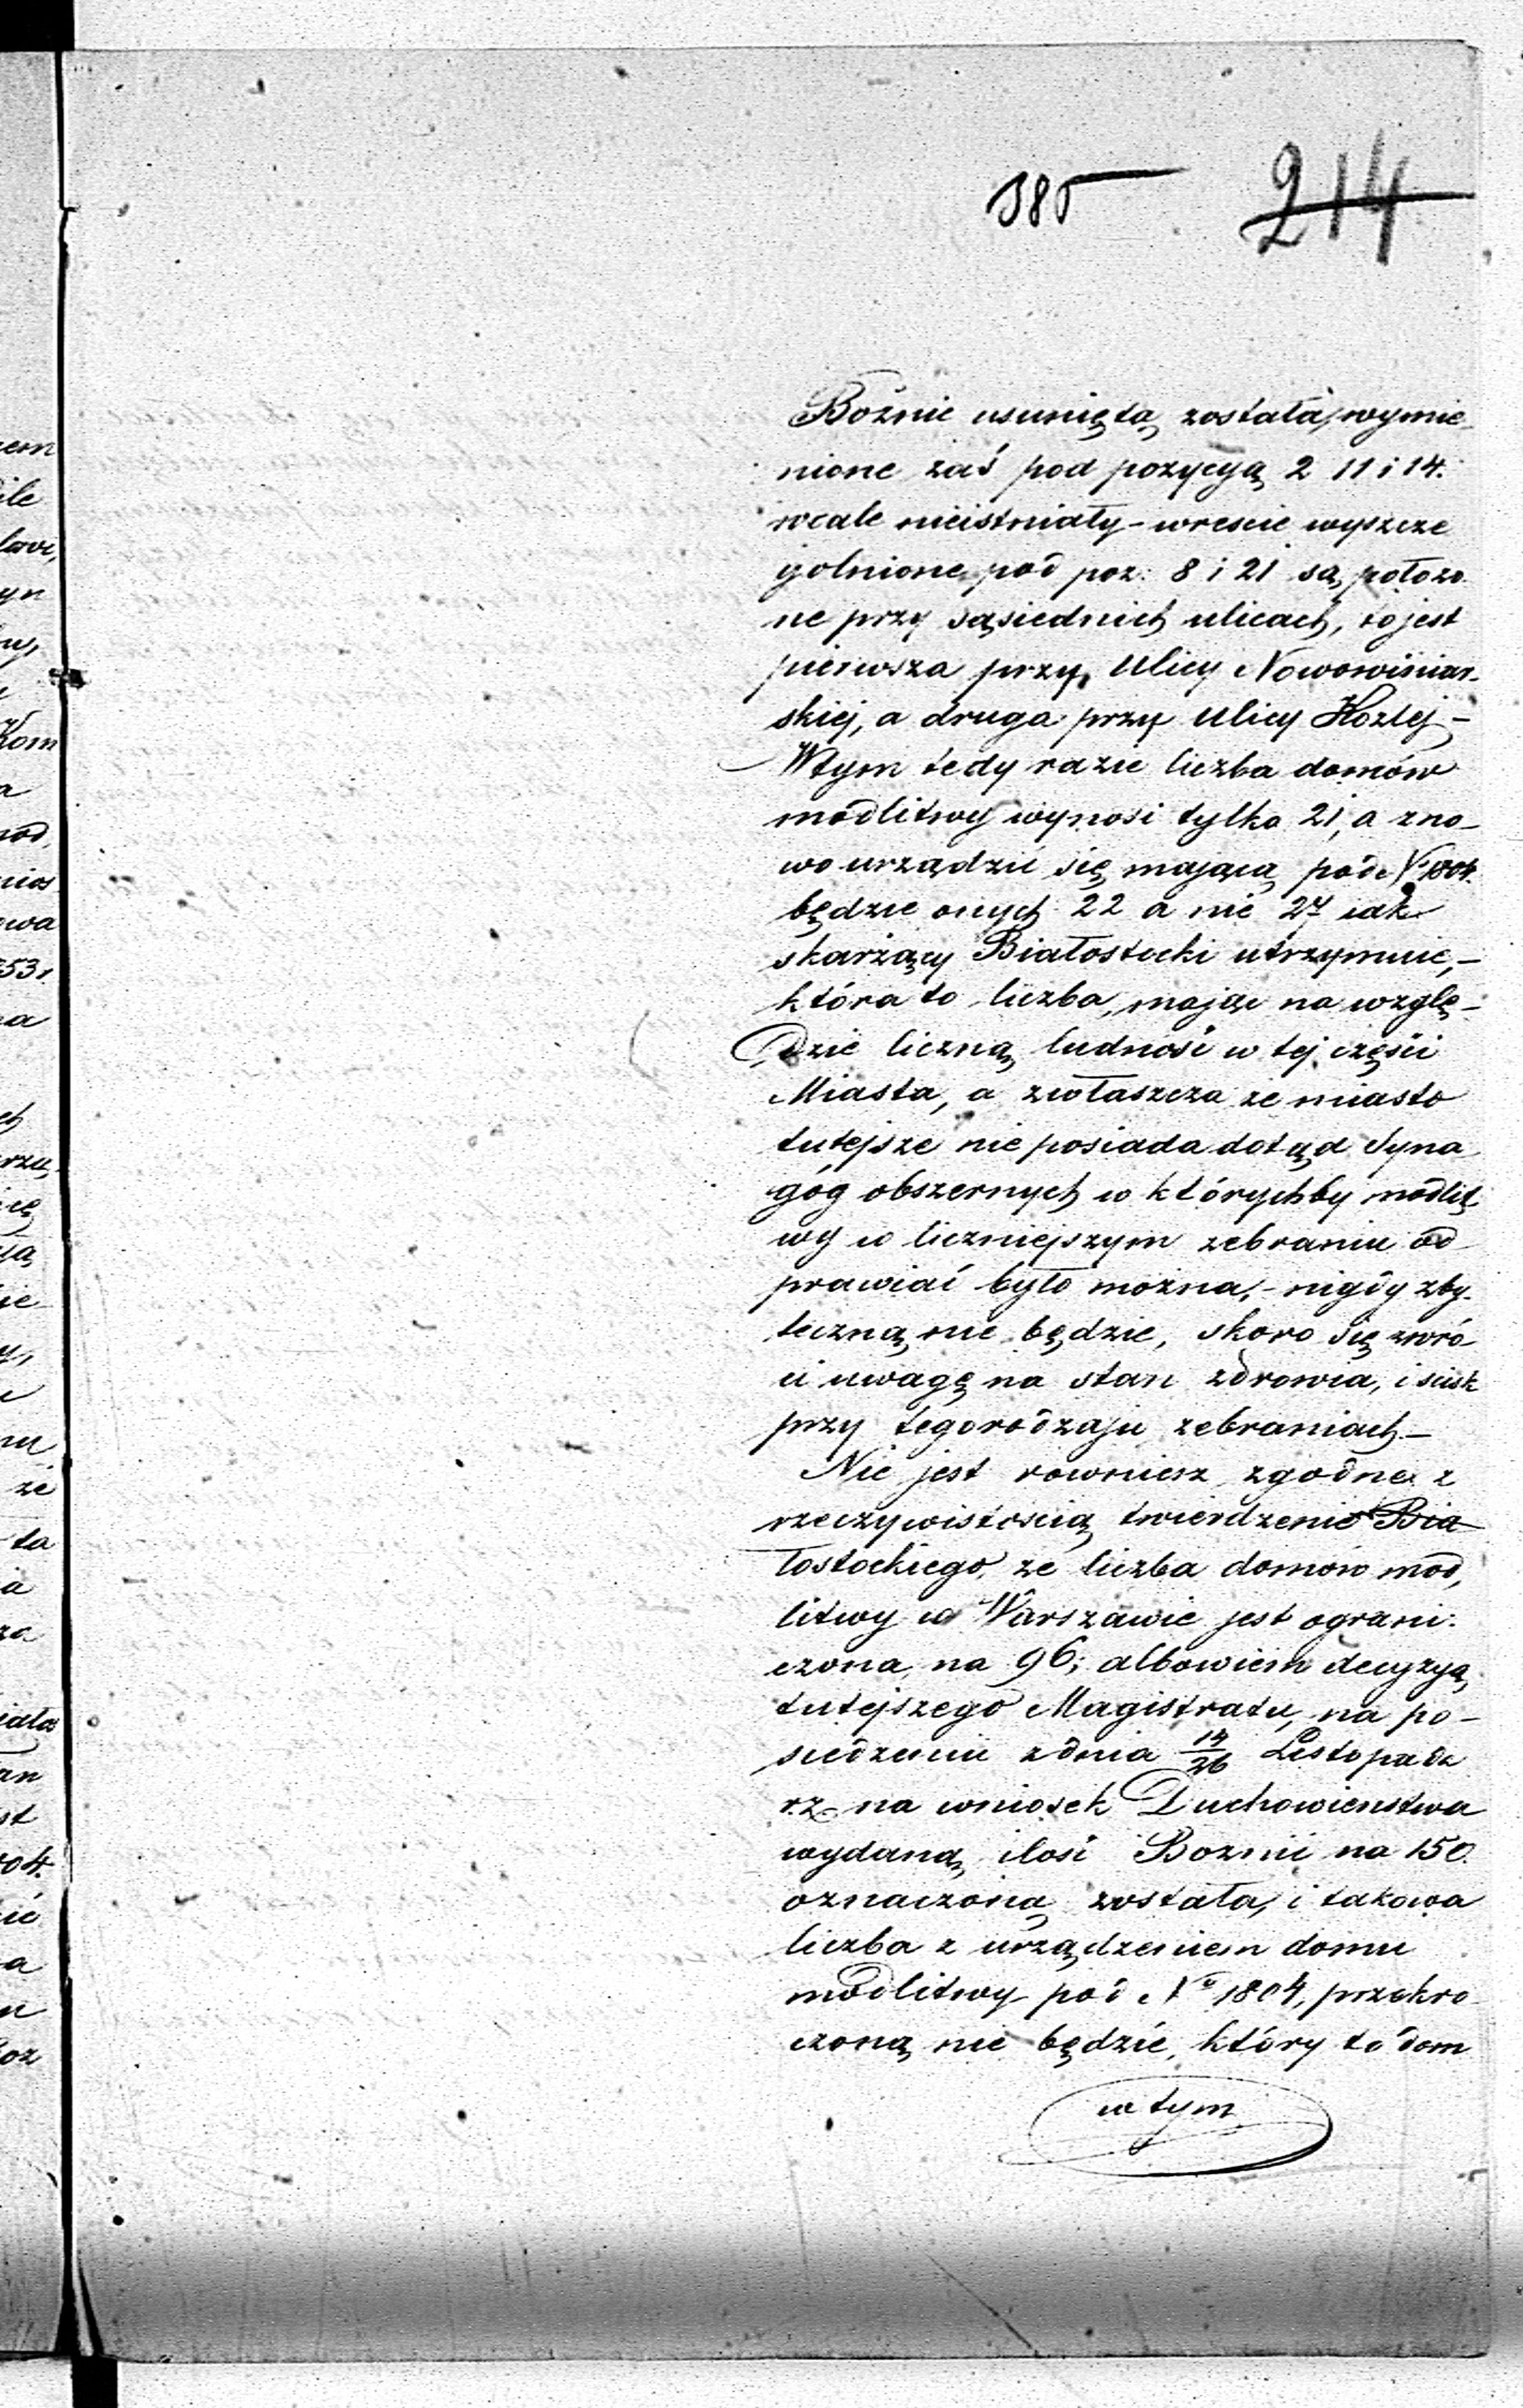 385 214
Bożnic usuniętą została, wymie-
nione zaś pod pozycyą 2 11 i 14.
wcale nieistniały - wrescie wyszcze
gólnione pod poz: 8 i 21 są położo
ne przy sąsiednich ulicach, to jest
pierwsza przy Ulicy Nowowiniar-
skiej, a druga przy Ulicy Koziej -
W tym tedy razie liczba domów
modlitwy wynosi tylko 21, a zno-
wo urządzić się mającą pod No 1804.
będzie onych 22 a nie 27 jak
skarżący Białostocki utrzymuie, -
która to liczba, mając na wzglę-
dzie liczną ludność w tej części
Miasta, a zwłaszcza że miasto
tutejsze nie posiada dotąd Syna
góg obszernych w którychby modlit
wy w liczniejszym zebraniu od
prawiać było można, - nigdy zby-
teczną nie będzie, skoro się zwró
ci uwagę na stan zdrowia, i scisk
przy tegorodzaju zebraniach -
Nie jest rowniesz zgodne z
rzeczywistością twierdzenie Bia
łostockiego, że liczba domów mod,
litwy w Warszawie jest ograni:
czona na 96; albowiem decyzyą
tutejszego Magistratu, na po-
siedzeniu z dnia 14/26 Listopada
r.z. na wniosek Duchowienstwa
wydaną, ilość Boznic na 150.
oznaczoną została, i takowa
liczba z urządzeniem domu
modlitwy pod No 1804, przekro
czoną nie będzie, który to dom
w tym